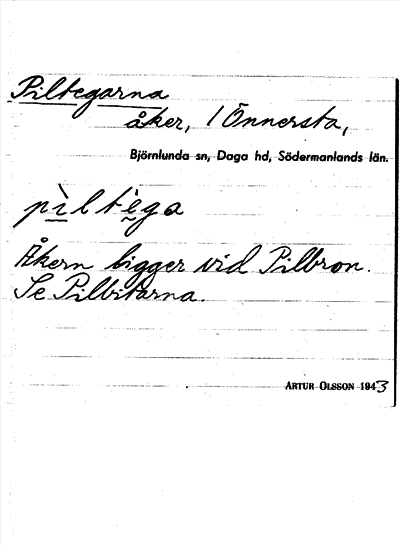 Piltegarna
åker, 1 Önnersta,
Björnlunda sn, Daga hd, Södermanlands län.
pìltèga
Åkern ligger vid Pilbron.
Se Pilbitarna.
ARTUR OLSSON 1943